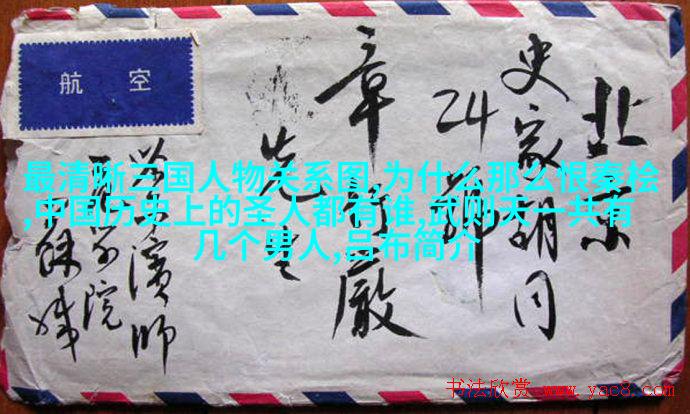 航 空
北京
史家胡同
24
章行嚴
先生
濱師
院
最清晰三国人物关系图,为什么那么恨秦桧
,中国历史上的圣人都有谁,武则天一共有
几个男人,吕布简介
书法欣赏 www.yac8.com